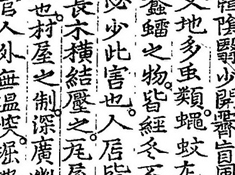 陰翳少開霽盲風
地多虫類蠅蚊在
蟠之物皆經冬不
少此害也人居皆
長木橫結壓之瓦屋
也村屋之制深廣
官人外無溫堗堀